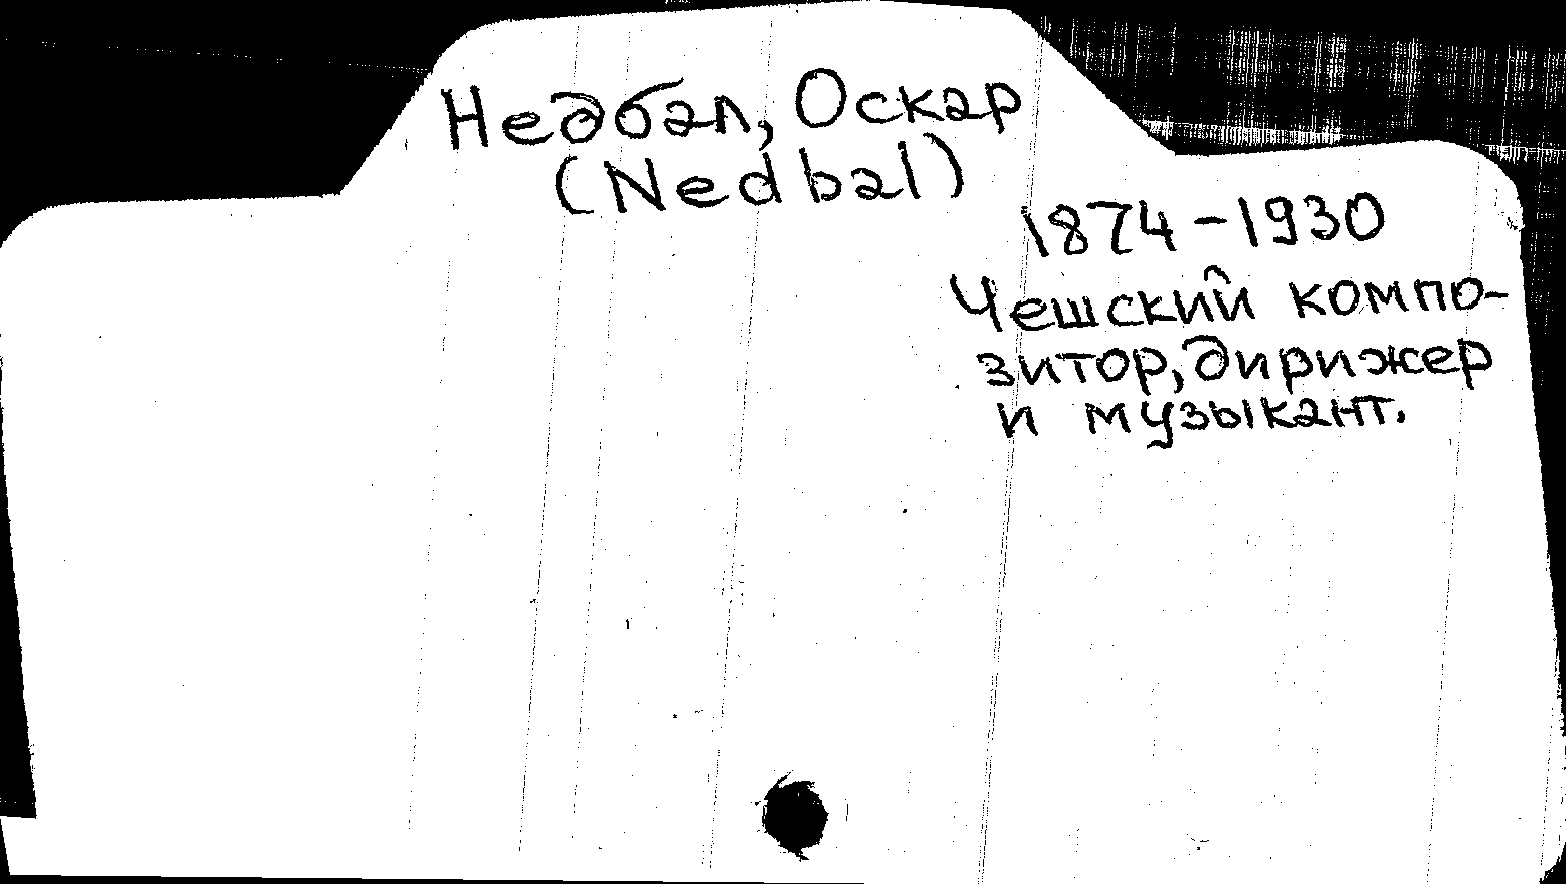 Недбал, Оскар
(Nedbal)
1874-1930
Чешский компо-
зитор, дирижер
и музыкант.